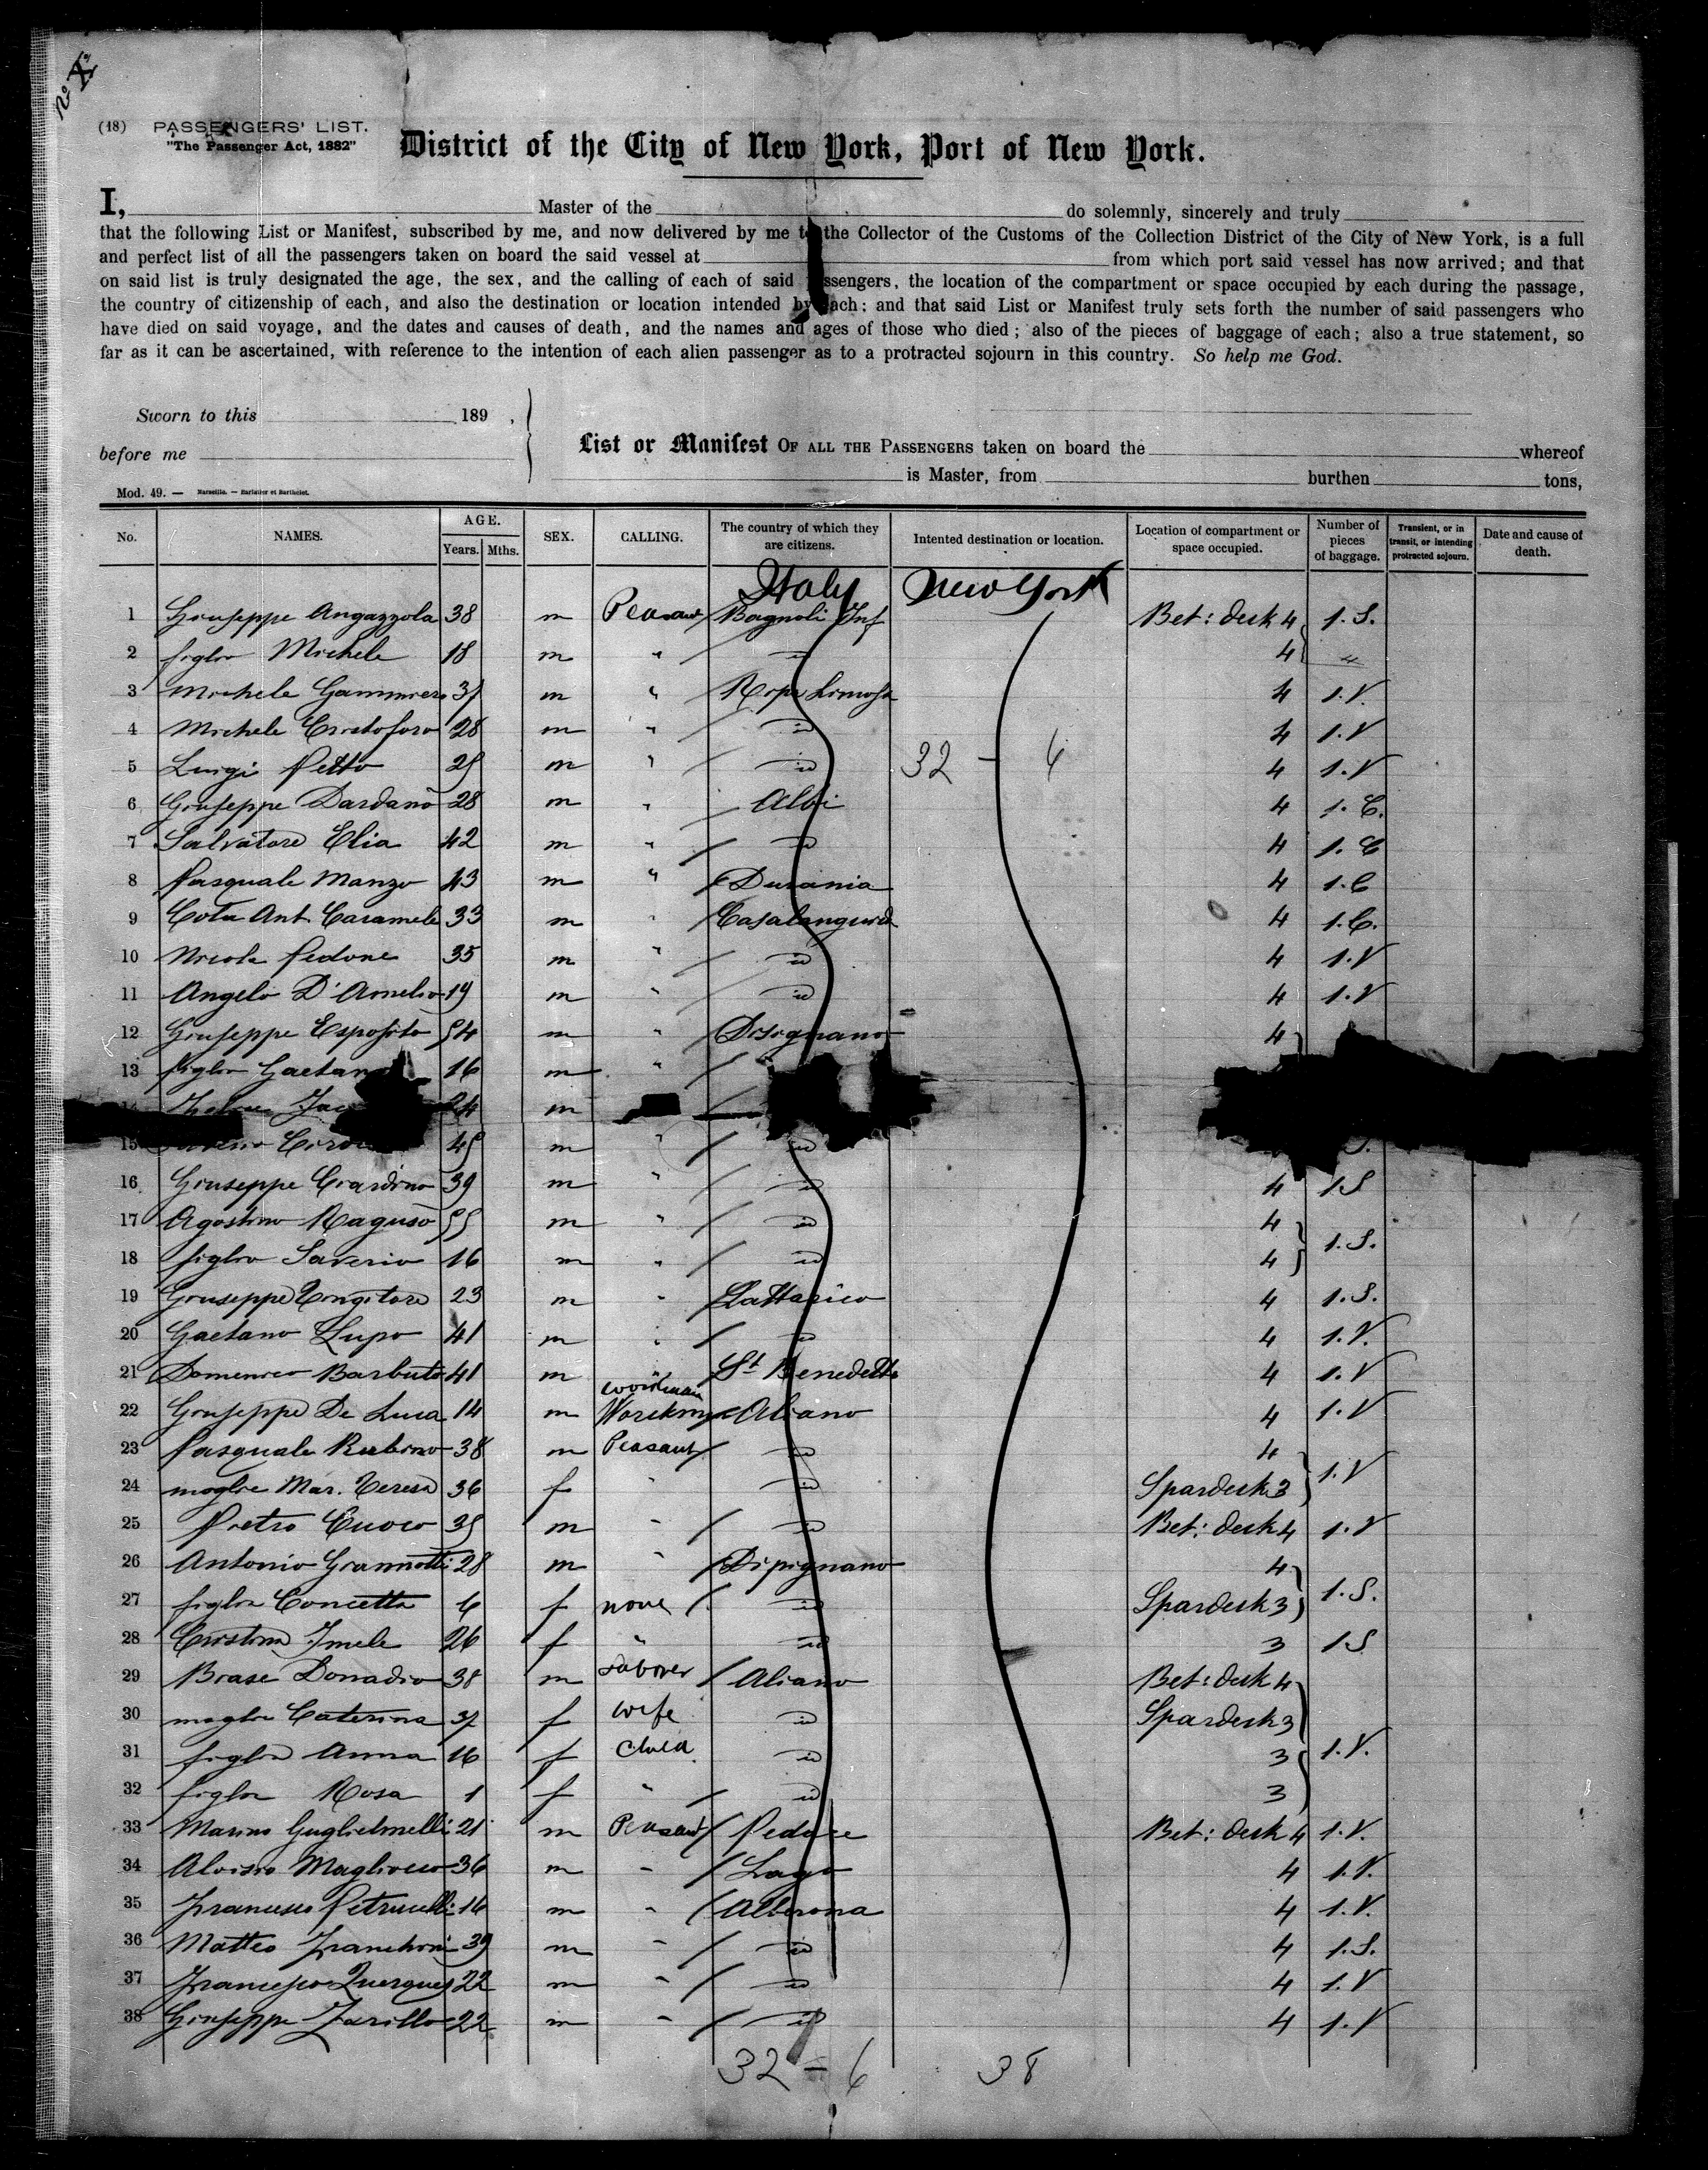 No X
(18) PASSENGERS' LIST.
"The Passenger Act, 1882"
District of the City of New York, Port of New York.
I, Master of the do solemnly, sincerely and truly
that the following List or Manifest, subscribed by me, and now delivered by me to the Collector of the Customs of the Collection District of the City of New York, is a full
and perfect list of all the passengers taken on board the said vessel at from which port said vessel has now arrived; and that
on said list is truly designated the age, the sex, and the calling of each of said passengers, the location of the compartment or space occupied by each during the passage,
the country of citizenship of each, and also the destination or location intended by each; and that said List or Manifest truly sets forth the number of said passengers who
have died on said voyage, and the dates and causes of death, and the names and ages of those who died; also of the pieces of baggage of each; also a true statement, so
far as it can be ascertained, with reference to the intention of each alien passenger as to a protracted sojourn in this country. So help me God.
Sworn to this 189 ,
before me
List or Manifest OF ALL THE PASSENGERS taken on board the whereof
is Master, from burthen tons,
Mod. 49. — Marseille. — Barlatier et Barthelet.
No. NAMES. AGE. Years. Mths. SEX. CALLING. The country of which they are citizens. Intented destination or location. Location of compartment or space occupied. Number of pieces of baggage. Transient, or in transit, or intending protracted sojourn. Date and cause of death.
Italy New York
1 Giuseppe Angazzola 38 m Peasant Bagnoli Inf Bet: desk 4 1. S.
2 figlio Michele 18 m " id 4 "
3 Michele 37 m " Ripa Limosa 4 1. V.
4 Michele Cristoforo 28 m " id 4 1. V
5 Luigi Petto 25 m " id 32 - 6 4 1. V
6 Giuseppe Dardano 28 m " Albi 4 1. C.
7 Salvatore Elia 42 m " id 4 1. C
8 Pasquale Manzo 43 m " Durania 4 1. C
9 Cola Ant Caramele 33 m " Casalanguida 4 1. C.
10 Nicola Pedone 35 m " id 4 1. V
11 Angelo D'Amelio 19 m " id 4 1. V
12 Giuseppe Esposito 54 m " Disignano 4
13 figlio Gaetano 16 m "
14 24 m
15 45 m " id S.
16 Giuseppe 39 m " id 4 1 S
17 Agostino Raguso 55 m " id 4
18 figlio Saverio 16 m " id 4 1. S.
19 Giuseppe Tongitore 23 m " Lattarico 4 1. S.
20 Gaetano Lupo 41 m " id 4 1. V.
21 Domenico Barbuto 41 m St Benedetto 4 1. V
22 Giuseppe De Luca 14 m workman Aliano 4 1. V
23 Pasquale Rubino 38 m Peasant id 4
24 moglie Mar. Teresa 36 f " id Spardesk 3 1. V
25 Pietro Cuoco 35 m " id Bet: desk 4 1. V
26 Antonio Giannotti 28 m " Dipignano 4
27 figlia Concetta 6 f none id Spardesk 3 1. S.
28 Cristina Imele 26 f " id 3 1 S
29 Biase Donadio 38 m Laborer Aliano Bet: desk 4
30 moglie Caterina 37 f wife id Spardesk 3
31 figlia Anna 16 f Child id 3 1. V.
32 figlia Rosa 1 f " id 3
33 Marino Guglielmelli 21 m Peasant Pedace Bet: desk 4 1. V.
34 Aloisio Magliocco 36 m " Lago 4 1. V.
35 Francesco Petrucelli 16 m " Alberona 4 1. V.
36 Matteo Franchini 39 m " id 4 1. S.
37 Francesco Querques 22 m " id 4 1. V
38 Giuseppe Zarillo 22 m " id 4 1. V
32 - 6 38